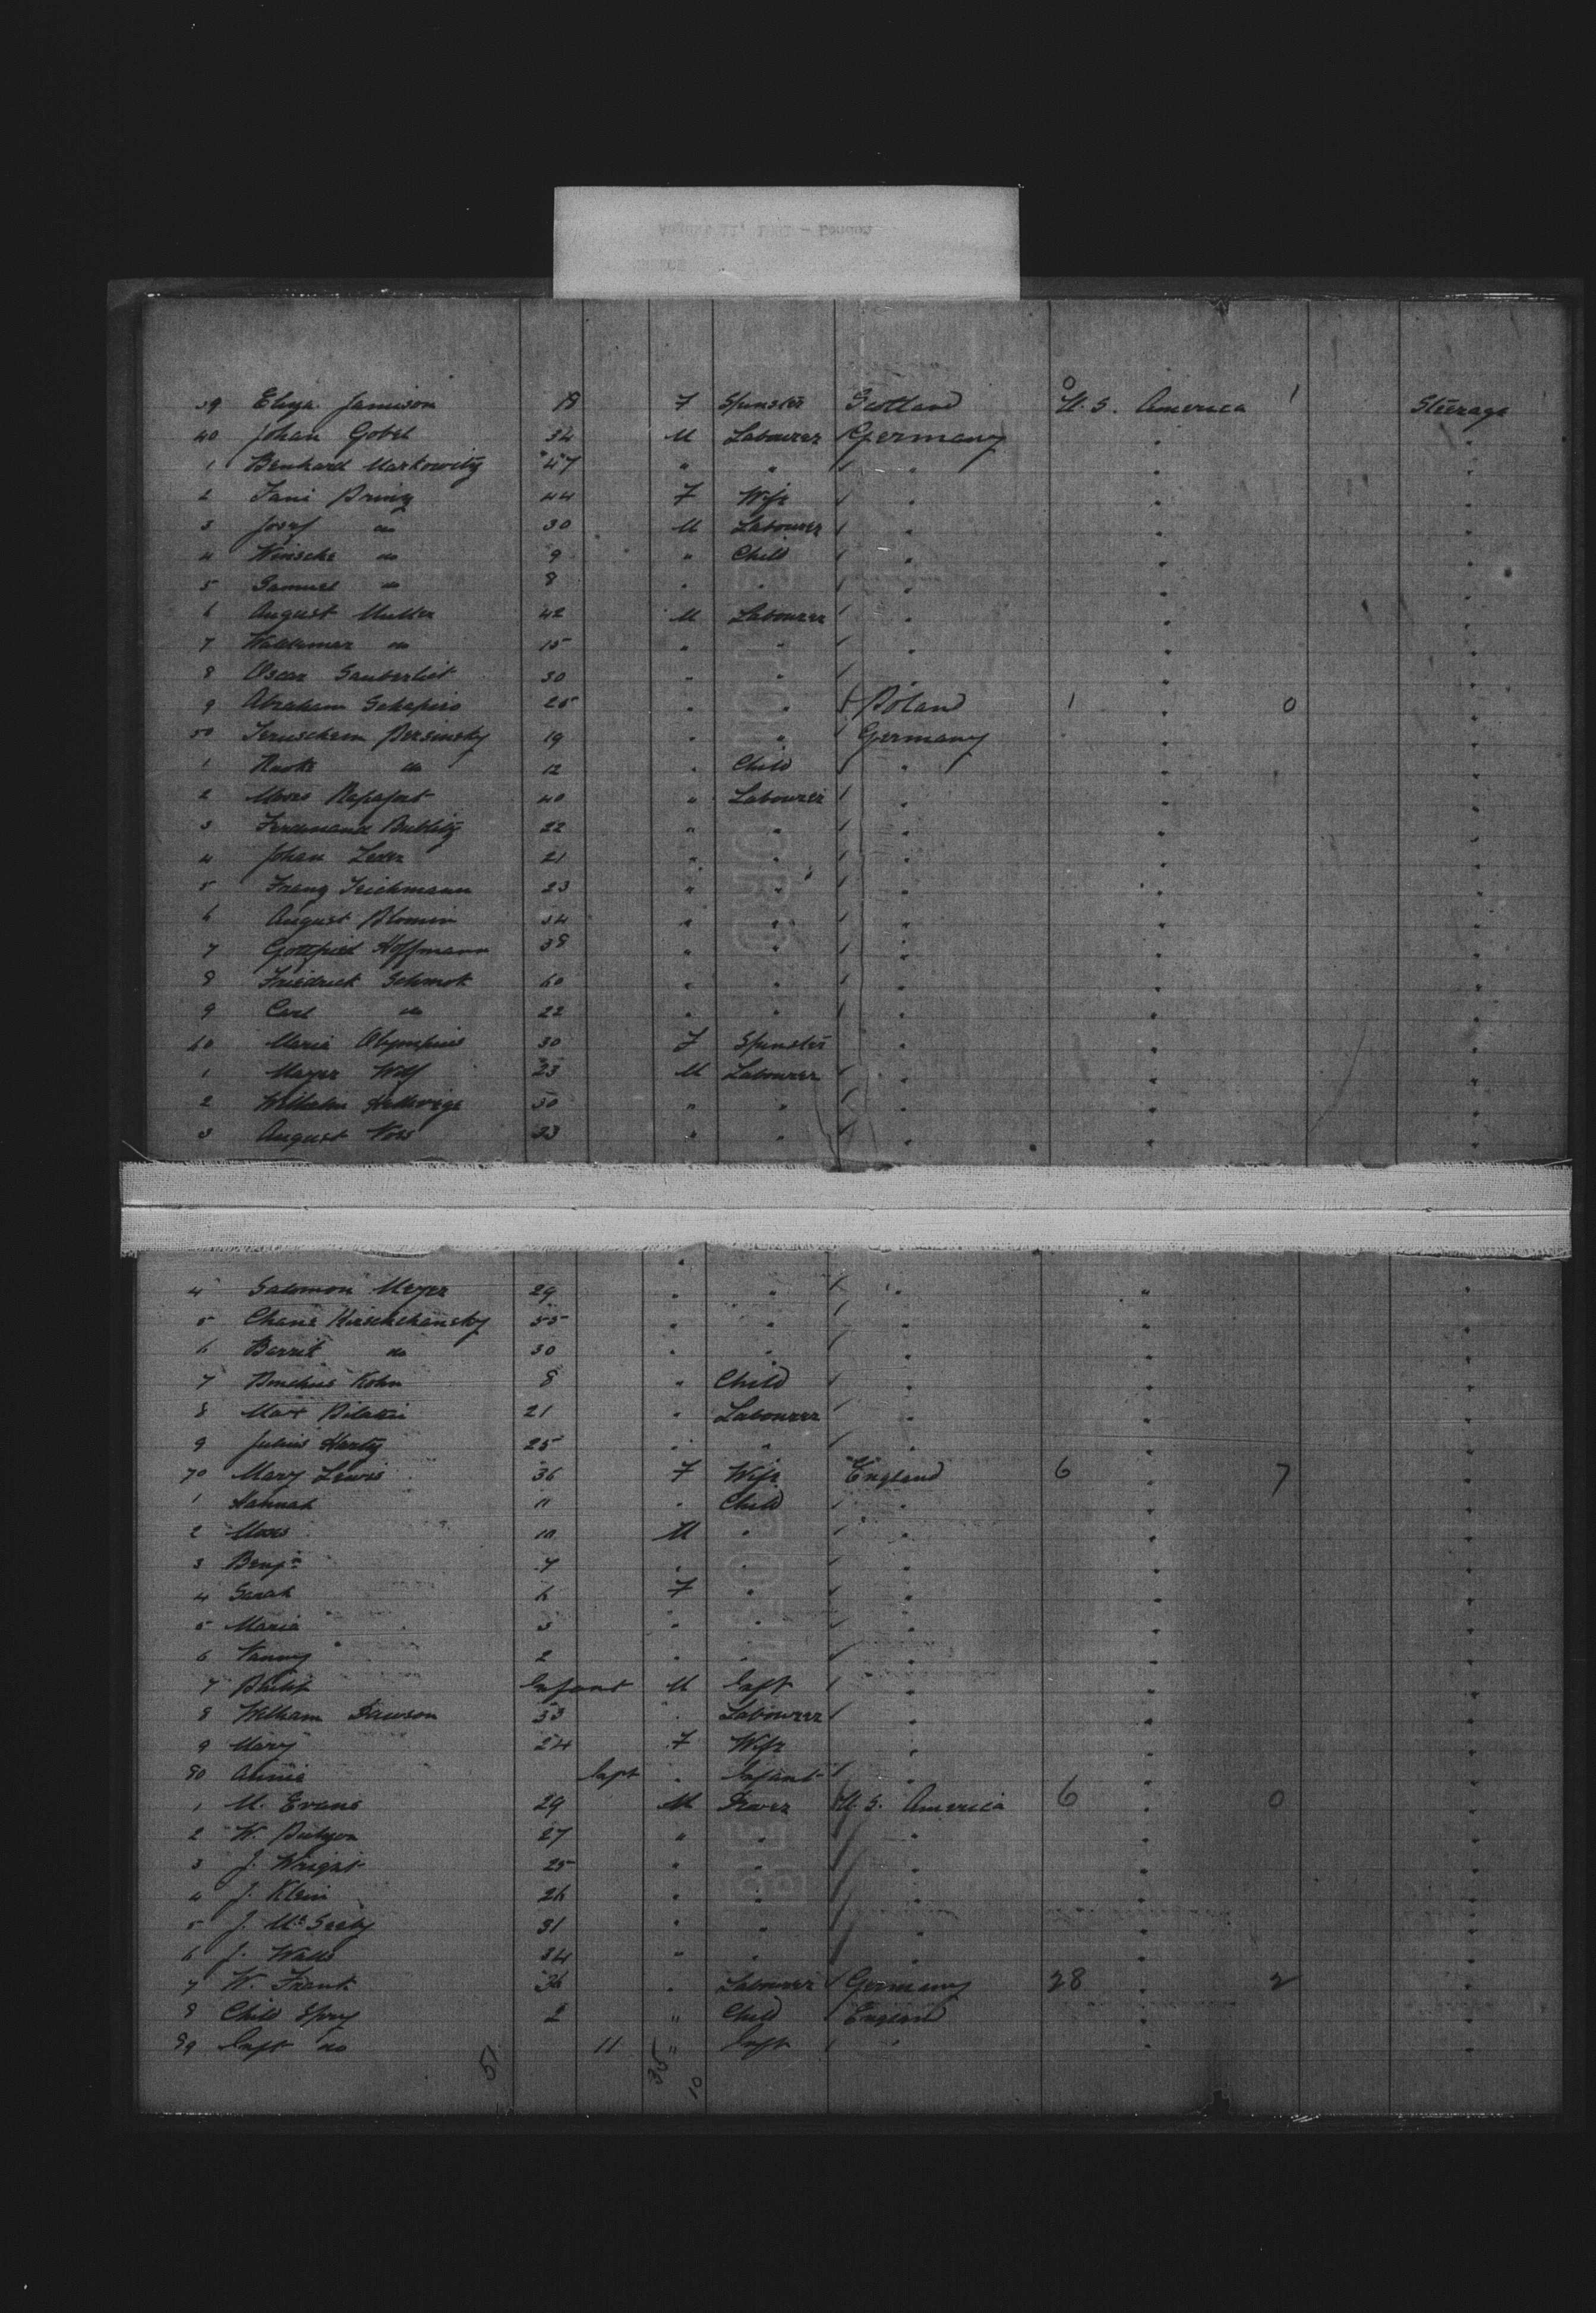 39 Eliza. Jamison 18 F Spinster Scotland 0 U. S. America 1 Steerage
40 Johan Gobel 34 M Labourer Germany " "
1 Benhard Markowitz 47 " " " " "
2 Fani Prinz 44 F Wife " " "
3 Josef do 30 M Labourer " " "
4 do 9 " Child " " "
5 Samuel do 8 " " " " "
6 August Muller 42 M Labourer " " "
7 Waldemar do 15 " " " " "
8 Oscar Sauberlich 30 " " " " "
9 Abraham Schapiro 25 " " Poland 1 " 0 "
50 Persinsky 19 " " Germany " "
1 do 12 " Child " " "
2 Moses Rapaport 40 " Labourer " " "
3 Ferdinand Bublitz 22 " " " " "
4 Johan 21 " " " " "
5 Franz Teichmann 23 " " " " "
6 August 34 " " " " "
7 Gottfried Hoffmann 38 " " " " "
8 Friedrich Schmok 60 " " " " "
9 Carl do 22 " " " " "
60 Maria 30 F Spinster " " "
1 Mayer Wolf 23 M Labourer " " "
2 Wilhelm 30 " " " " "
3 August Voss 33 " " " " "
4 Salomon Meyer 29 " " " " "
5 Chane 55 " " " " "
6 do 30 " " " " "
7 Kohn 8 " Child " " "
8 Max 21 " Labourer " " "
9 Julius Hartz 25 " " " " "
70 Mary Lewis 36 F Wife England 6 " 7 "
1 Hannah 11 " Child " " "
2 Moses 10 M " " " "
3 Benjn 7 " " " " "
4 Sarah 6 F " " " "
5 Maria 3 " " " " "
6 2 " " " " "
7 Philip Infant M Inft " " "
8 William Dawson 33 " Labourer " " "
9 Mary 24 F Wife " " "
80 Annie Inft " Infant " " "
1 M. Evans 29 M U. S. America 6 " 0 "
2 W. 27 " " " " "
3 J. Wright 25 " " " " "
4 J. Klein 26 " " " " "
5 J. 31 " " " " "
6 J. Walls 34 " " " " "
7 W. Frank 36 " Labourer Germany 28 " 2 "
8 Child Spry 2 " Child England " "
89 Inft do 11 " Inft " " "
51 35 10